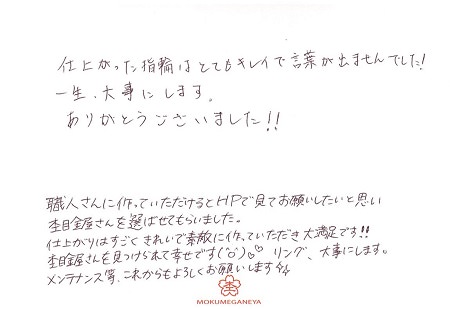 仕上がった指輪はとてもキレイで言葉が出ませんでした!
一生、大事にします。
ありがとうございました!!
職人さんに作っていただけるとHPで見てお願いしたいと思い
杢目金屋さんを選ばせてもらいました。
仕上がりはすごくきれいで素敵に作っていただき大満足です!!
杢目金屋さんを見つけられて幸せです(^o^)♡♡ リング、大事にします。
メンテナンス等、これからもよろしくお願いします
杢
MOKUMEGANEYA